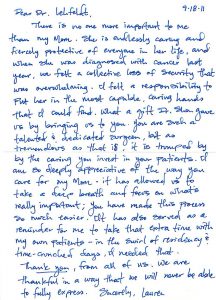 9-18-11
Dear Dr. Lehfeldt,
There is no one more important to me
than my Mom. She is endlessly caring and
fiercely protective of everyone in her life, and
when she was diagnosed with cancer last
year, we felt a collective loss of security that
was overwhelming. I felt a responsibility to
put her in the most capable, caring hands
that I could find. What a gift Dr. Shaw gave
us by bringing us to you. You are such a
talented & dedicated surgeon, but as
tremendous as that is, it is trumped by
by the caring you invest in your patients. I
am so deeply appreciative of the way you
care for my Mom. It has allowed us to
take a deep breath and focus on what's
really important; you have made this process
so much easier. It has also served as a
reminder for me to take that extra time with
my own patients - in the swirl of residency &
time-crunched days, I needed that.
Thank you, from all of us. We are
thankful in a way that we will never be able
to fully express. Sincerely, Lauren